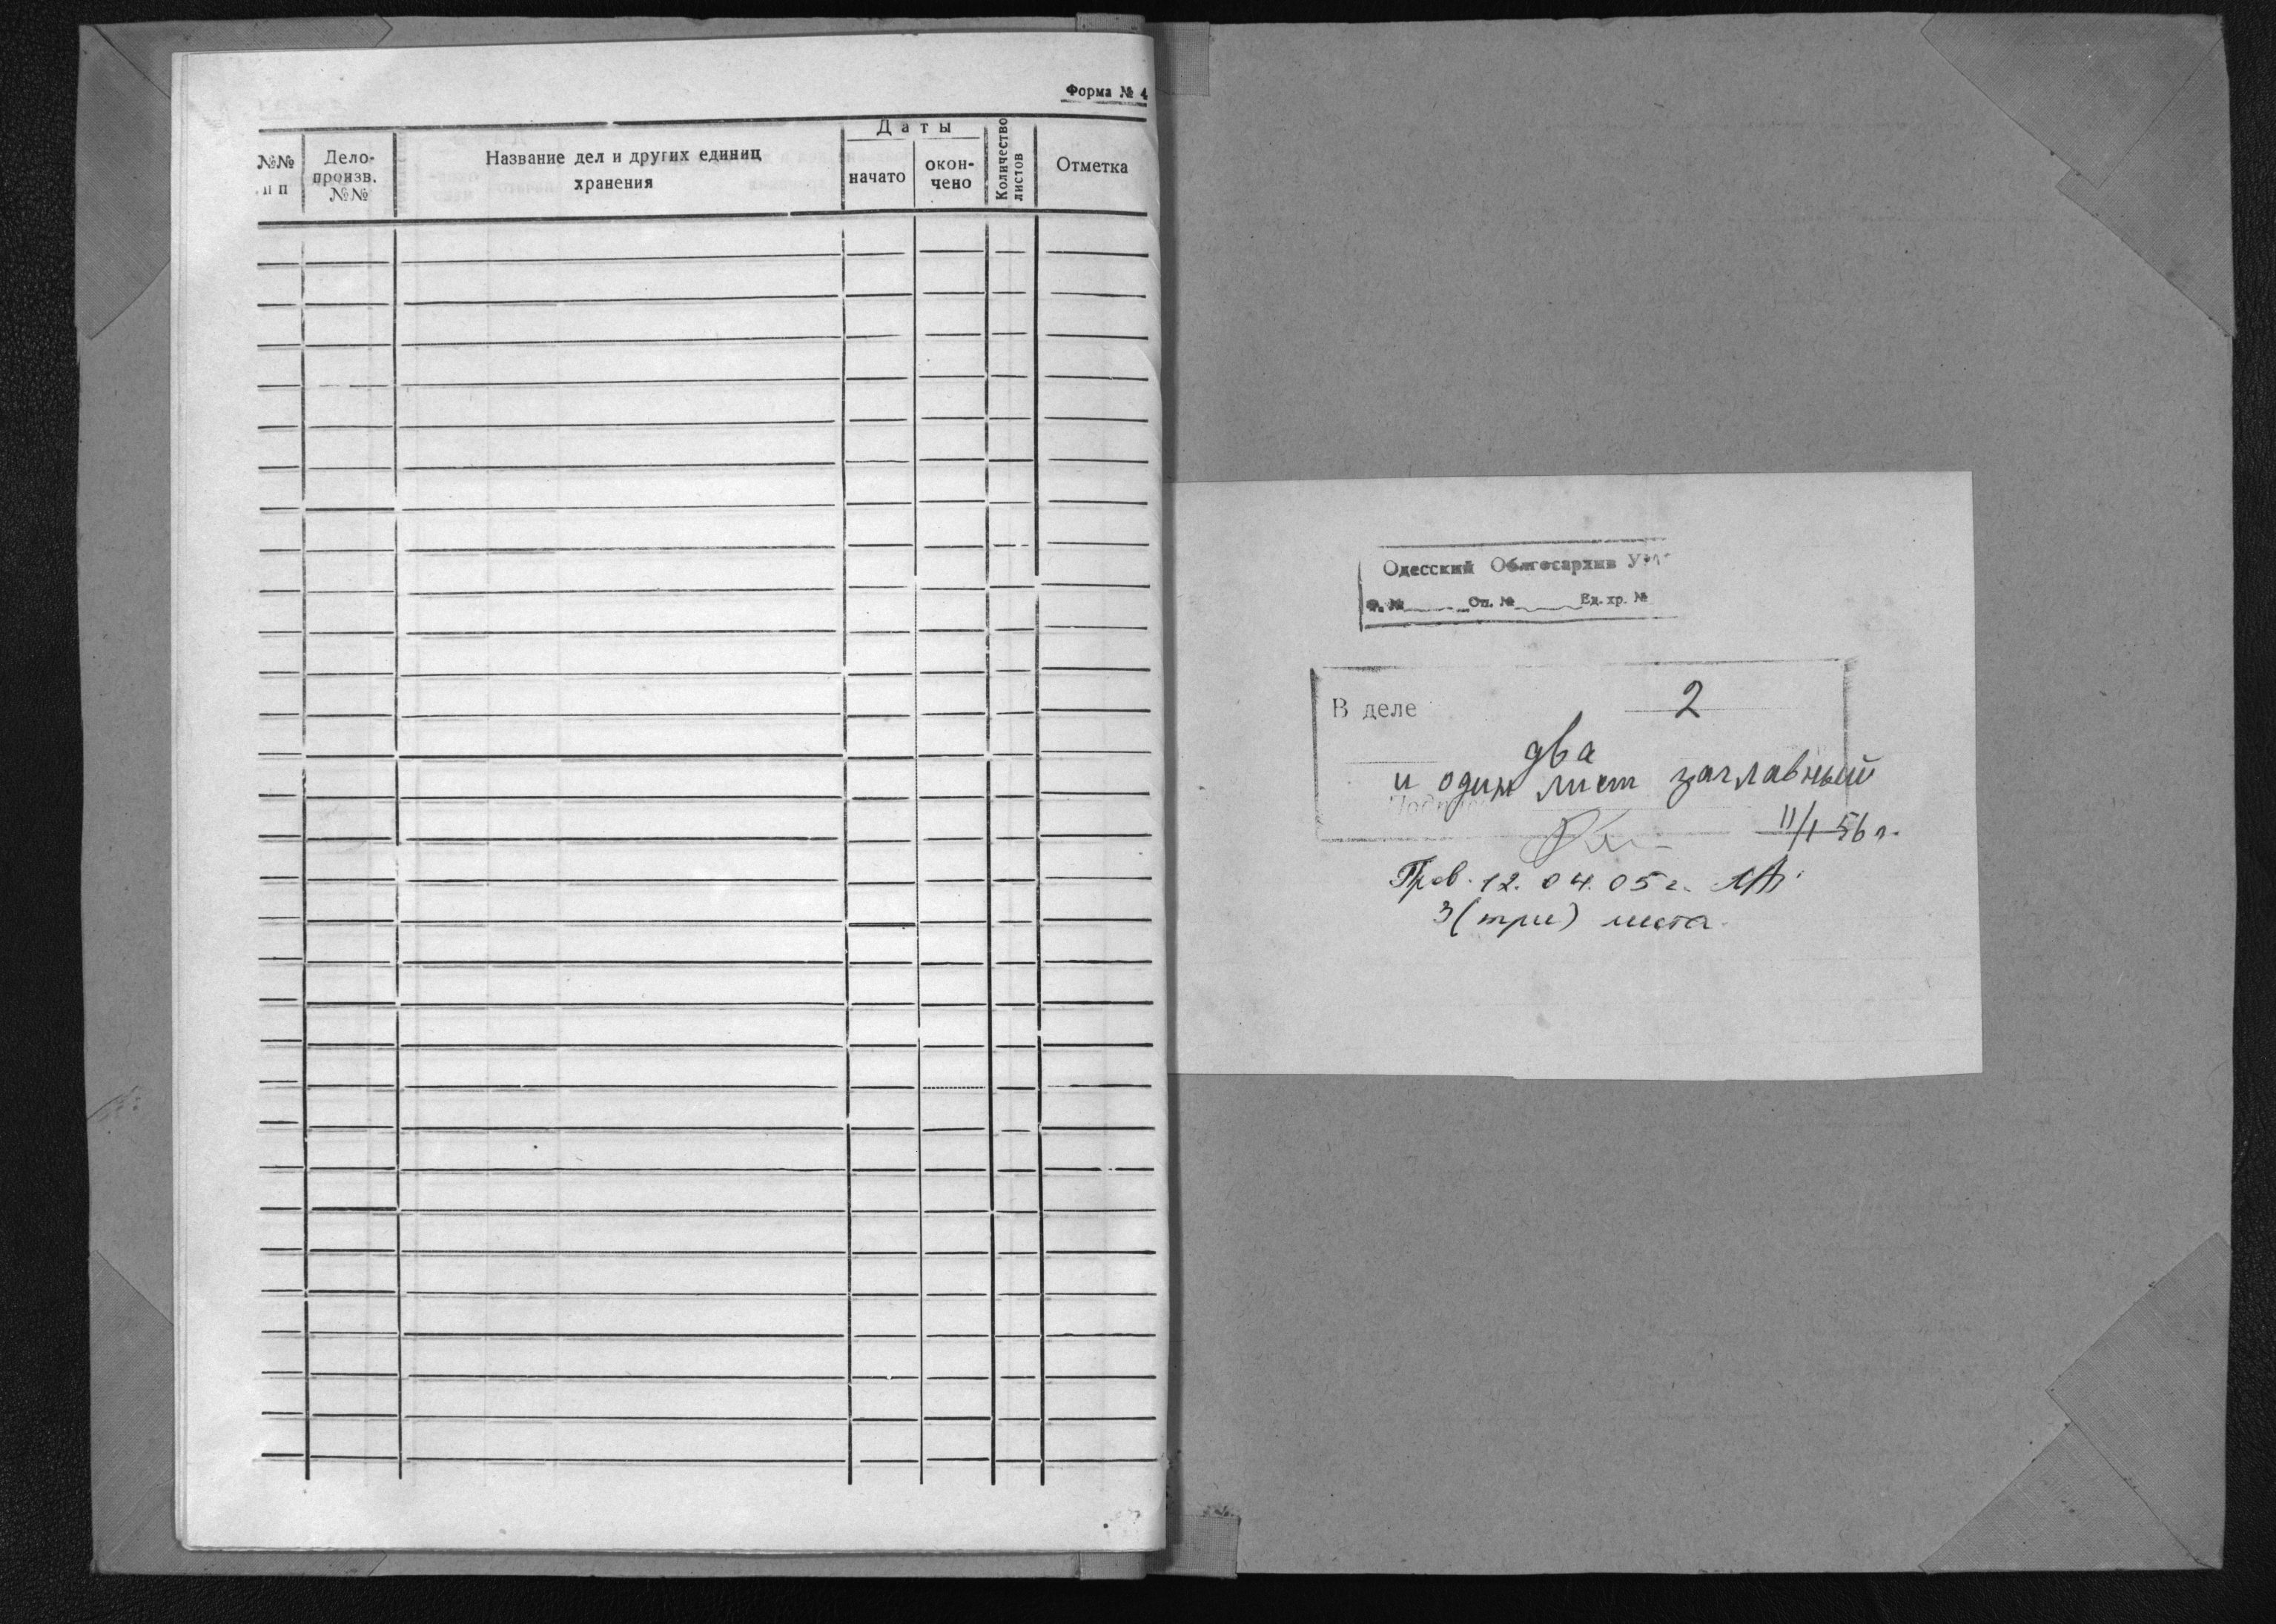 Форма № 4
№№ п п
Дело-произв. №№
Название дел и других единиц хранения
Даты
начато
окон-чено
Количество листов
Отметка
Одесский Облгосархив
Ф. № Оп. № Ед. хр. №
В деле 2
два
и один лист заглавный
11/I 56 г.
Пров. 12. 04. 05 г.
3 (три) листа